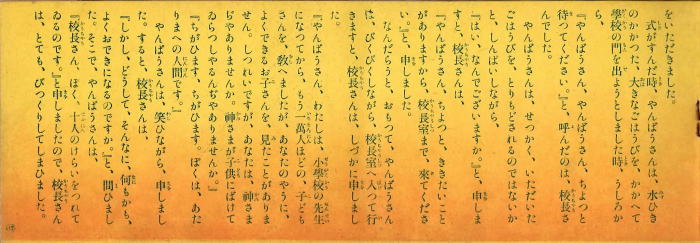 をいただきました。
式がすんだ時、やんばうさんは、水ひき
のかかつた、大きなごはうびを、かかへて
學校の門を出ようとしました時、うしろか
ら、
『やんばうさん、やんばうさん、ちよつと
待つてください。』と、呼んだのは、校長さ
んでした。
やんばうさんは、せつかく、いただいた
ごはうびを、とりもどされるのではないか
と、しんぱいしながら、
『はい、なんでございますか。』と、申しま
すと、校長さんは、
『やんばうさん、ちよつと、ききたいこと
がありますから、校長室まで、來てくださ
い。』と、申しました。
なんだらうと、おもつて、やんばうさん
は、びくびくしながら、校長室へ入つて行
きますと、校長さんは、しづかに申しまし
た。
『やんばうさん、わたしは、小學校の先生
になつてから、もう一萬人ほどの、子ども
さんを、敎へましたが、あなたのやうに、
よくできるお子さんを、見たことがありま
せん。しつれいですが、あなたは、神さま
ぢやありませんか。神さまが子供にばけて
ゐらつしやるんぢやありませんか。』
『ちがひます、ちがひます。ぼくは、あた
りまへの人間です。』
やんばうさんは、笑ひながら、申しまし
た。すると、校長さんは、
『しかし、どうして、そんなに、何もかも、
よくおできになるのですか。』と、問ひまし
た。そこで、やんばうさんは、
『校長さん、ぼく、十人のけらいをつれて
ゐるのです。』と申しましたので、校長さん
は、とても、びつくりしてしまひました。